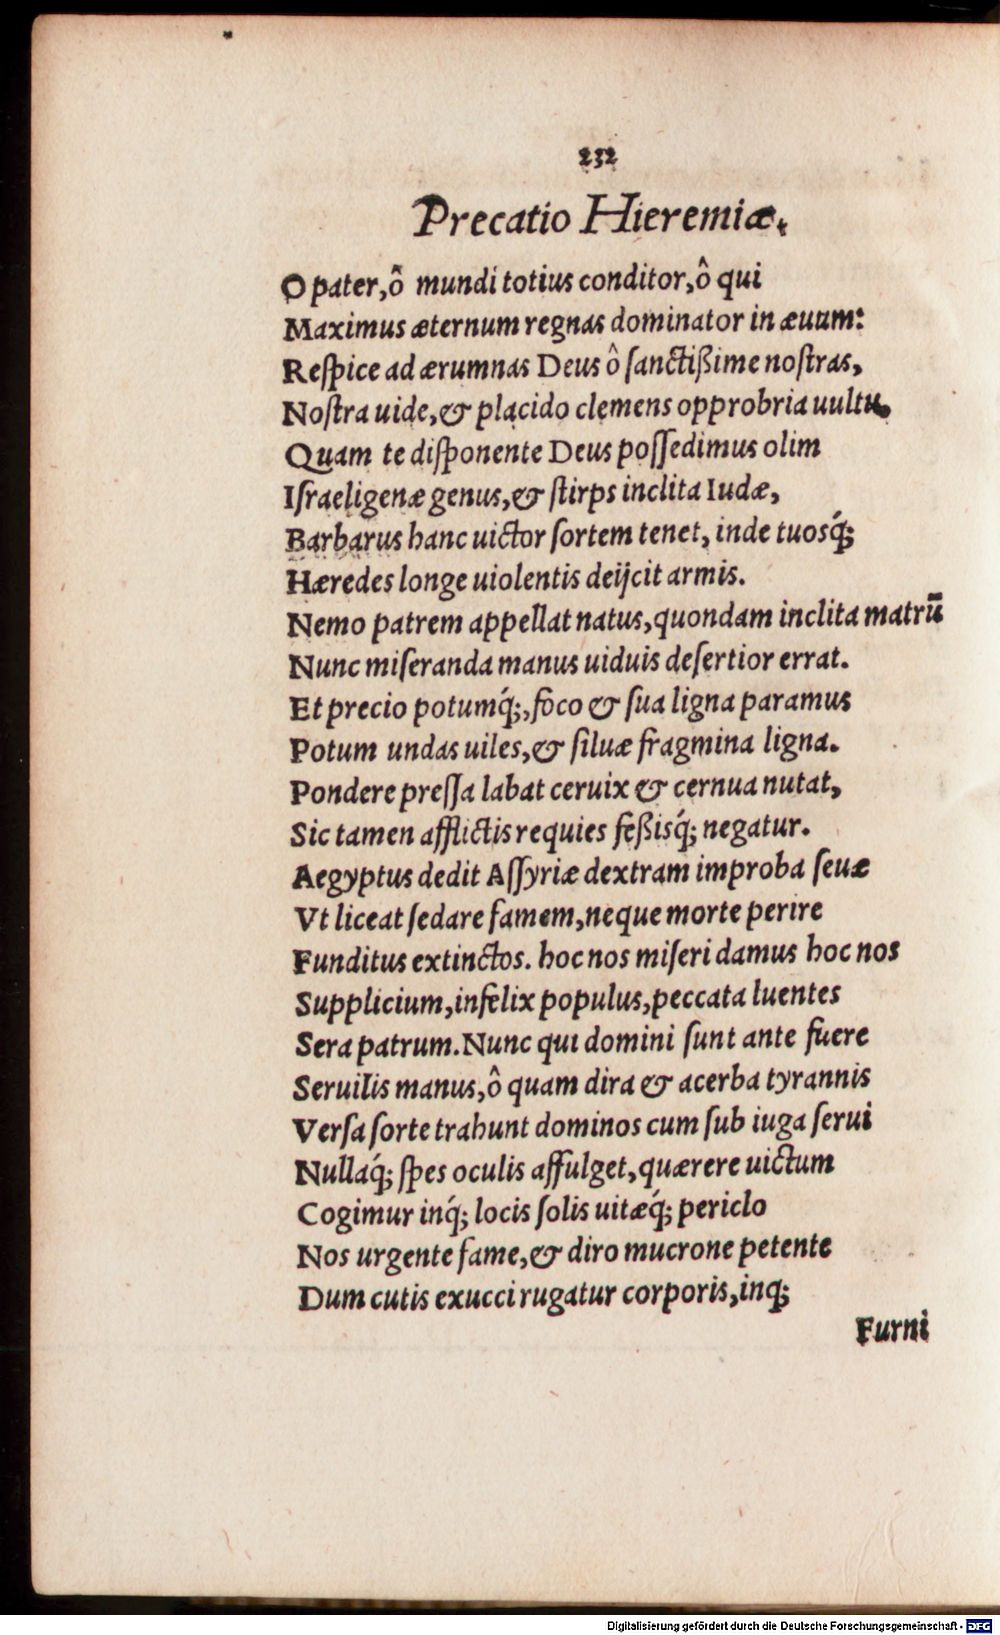 232
Precatio Hieremiæ.
O pater,ô mundi totius conditor,ô qui
Maximus æternum regnas dominator in æuum:
Reſpice ad ærumnas Deus ô ſanctißime noſtras,
Noſtra uide,& placido clemens opprobria uultu.
Quam te diſponente Deus poſſedimus olim
Iſraeligenæ genus,& ſtirps inclita Iudæ,
Barbarus hanc uictor ſortem tenet, inde tuosq́;
Hæredes longe uiolentis deijcit armis.
Nemo patrem appellat natus,quondam inclita matrū
Nunc miſeranda manus uiduis deſertior errat.
Et precio potumq́;,foco & ſua ligna paramus
Potum undas uiles,& ſiluæ fragmina ligna.
Pondere preſſa labat ceruix & cernua nutat,
Sic tamen afflictis requies feßisq́; negatur.
Aegyptus dedit Aſſyriæ dextram improba ſeuæ
Vt liceat ſedare famem,neque morte perire
Funditus extinctos. hoc nos miſeri damus hoc nos
Supplicium,infelix populus,peccata luentes
Sera patrum.Nunc qui domini ſunt ante fuere
Seruilis manus,ô quam dira & acerba tyrannis
Verſa ſorte trahunt dominos cum ſub iuga ſerui
Nullaq́; ſpes oculis affulget,quærere uictum
Cogimur inq́; locis ſolis uitæq́; periclo
Nos urgente fame,& diro mucrone petente
Dum cutis exucci rugatur corporis,inq;
Furni
Digitalisierung gefördert durch die Deutsche Forschungsgemeinschaft - DFG